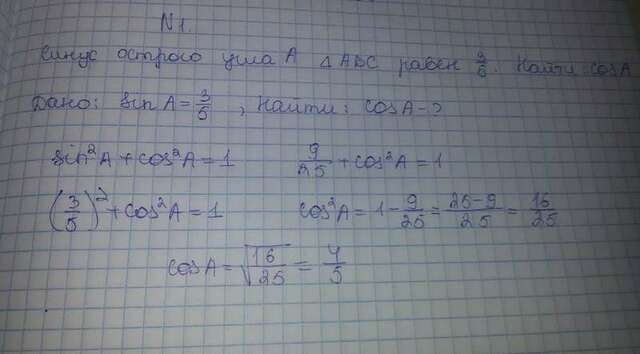 N1.
Синус острого угла A △ABC равен 3/5. Найти cosA
Дано: sin A = 3/5, Найти: cosA-?
sin²A + cos²A = 1 9/25 + cos²A = 1
(3/5)² + cos²A = 1 cos²A = 1 - 9/25 = 25-9/25 = 16/25
cosA = √16/25 = 4/5